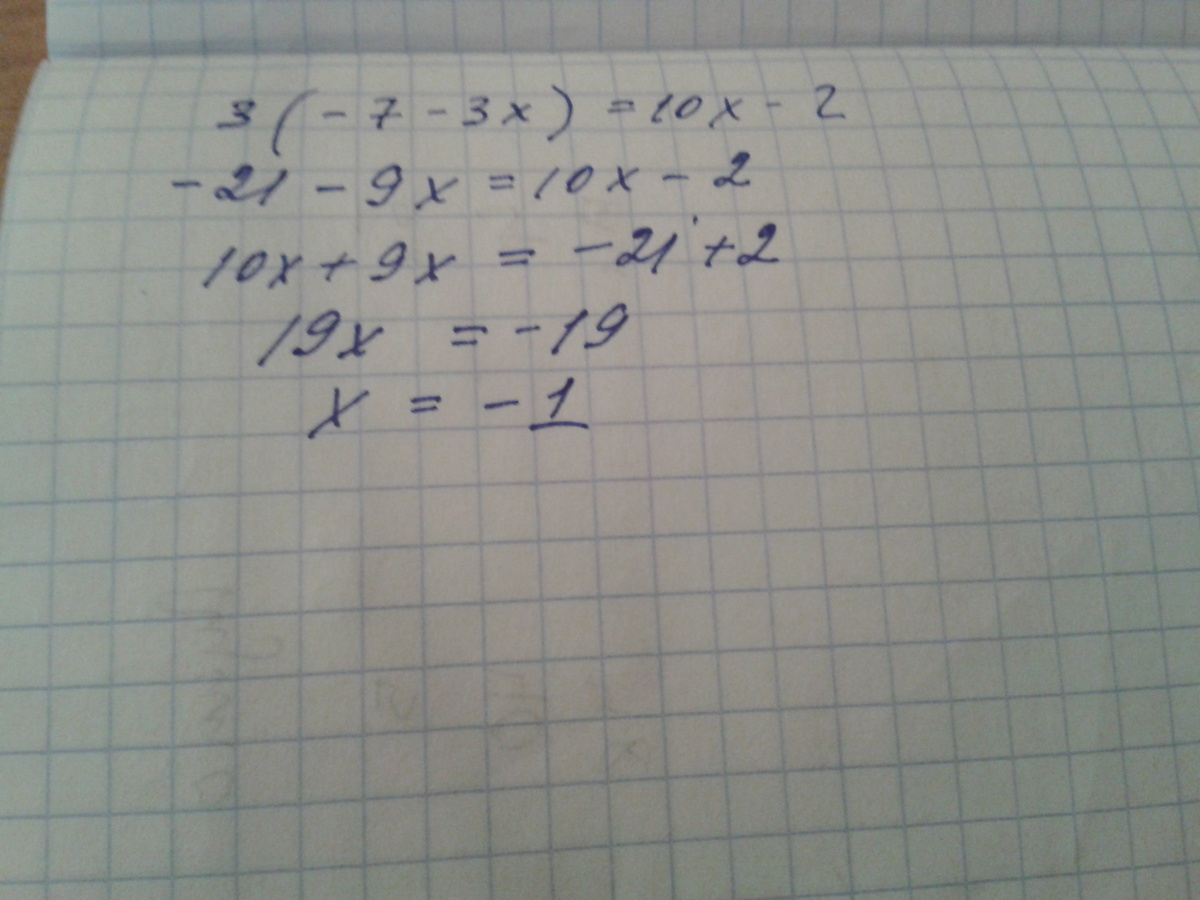 3(-7-3x)=10x-2
-21-9x=10x-2
10x+9x=-21+2
19x=-19
x=-1